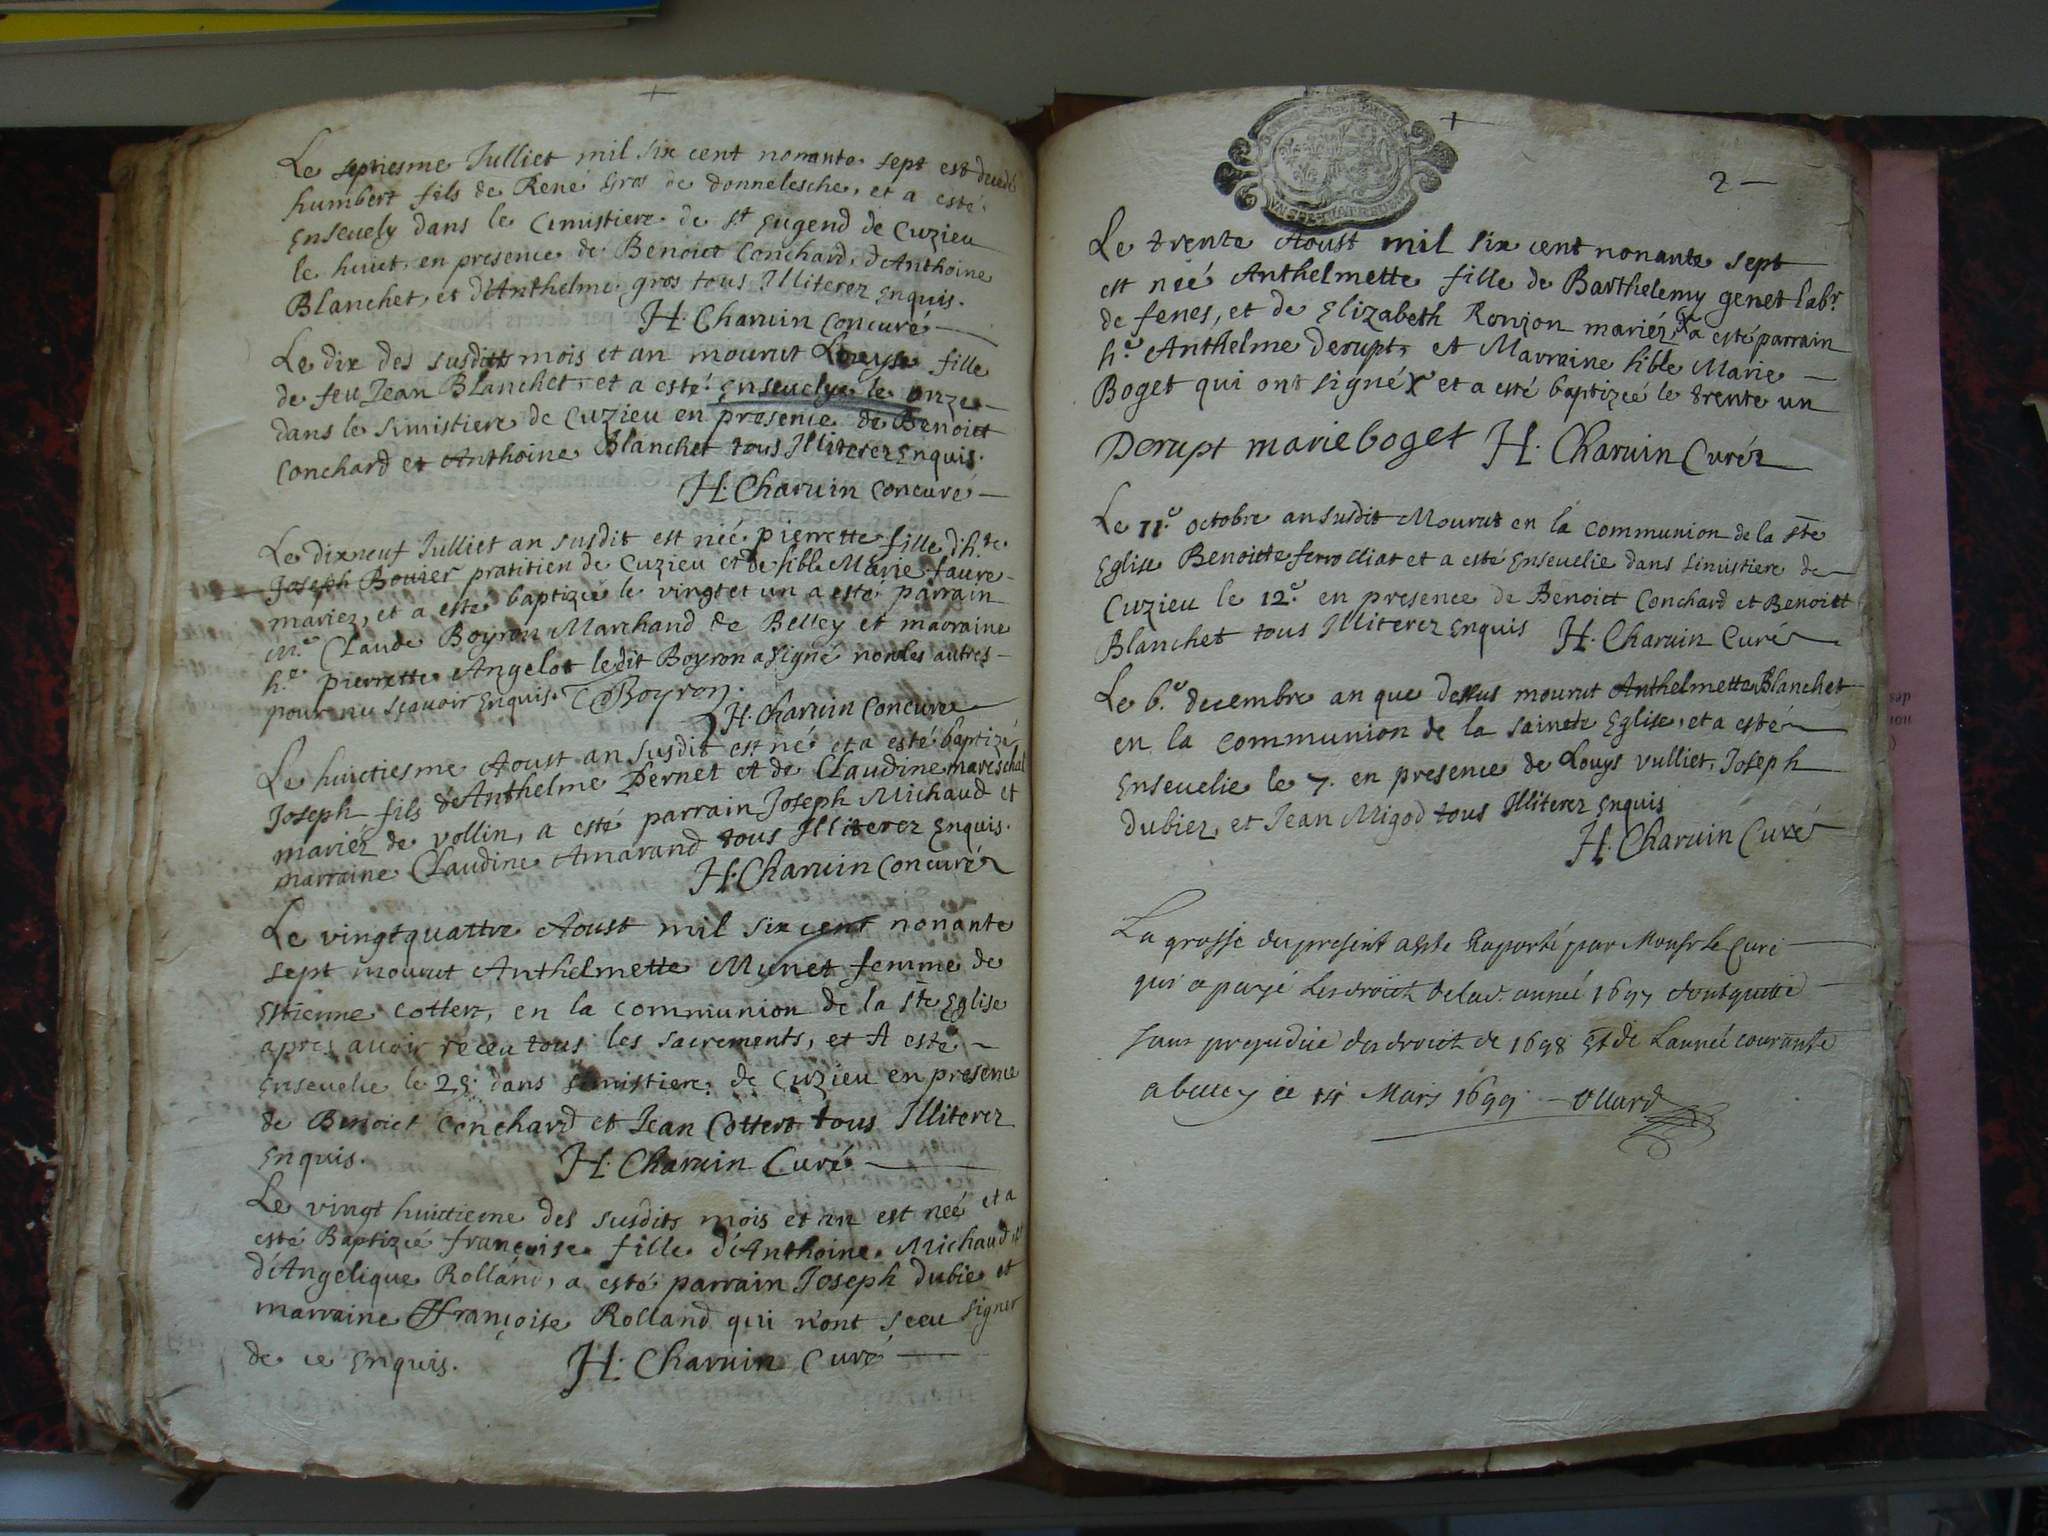 Le septiesme Julliet mil six cent nonante sept est decedé
humbert fils de René Gros de donnelesche, et a esté
Enseuely dans le Cimistiere de St Eugend de Cuzieu
le huict, en presence de Benoict Conchard, d'Anthoine
Blanchet, et d'Anthelme gros tous Illiterez Enquis.
H. Charuin Concuré
Le dix des susdits mois et an mourut Loeyse fille
de feu Jean Blanchet, et a esté Enseuelye le onze
dans le simistiere de Cuzieu en presence de Benoict
Conchard et Anthoine Blanchet tous Illiterez Enquis.
H. Charuin Concuré
Le dixneuf Julliet an susdit est néé pierrette fille d'h.te
Joseph Bouier pratitien de Cuzieu et de hble Marie faure
mariez, et a esté baptizéé le vingt et un a esté parrain
m.e Claude Boyron Marchand de Belley et marraine
h.e pierrette Angelot ledit Boyron a signé non les autres
pour nu scauoir Enquis. C Boyron.
H. Charuin Concuré
Le huictiesme Aoust an susdit est né et a esté baptizé
Joseph fils d'Anthelme Pernet et de Claudine mareschal
mariéz de vollin, a esté parrain Joseph Michaud et
marraine Claudine Amarand tous Illiterez Enquis.
H. Charuin Concuré
Le vingtquattre Aoust mil six cent nonante
sept mourut Anthelmette Munet femme de
Estienne Cotterz, en la communion de la Ste Eglise
apres auoir réceu tous les sacrements, et A esté
Enseuelie le 25. dans simistiere de Cuzieu en presence
de Benoict Conchard et Jean Cotterz tous Illiterez
Enquis. H. Charuin Curé
Le vingt huictiéme des susdits mois et an est néé et a
esté Baptizéé francoise fille d'Anthoine Michaud, et
d'Angelique Rolland, a esté parrain Joseph dubie et
marraine ffrançoise Rolland qui n'ont sceu signer
de ce Enquis. H. Charuin Curé
2
Le trente Aoust mil six cent nonante sept
est néé Anthelmette fille de Barthelemy genet labr.
de fenes, et de Elizabeth Ronzon mariéz, a esté parrain
h.e Anthelme Derupt, et Marraine hble Marie
Boget qui ont signé et a esté baptizéé le trente un
Derupt marie boget H. Charuin Curé
Le 11.e octobre an susdit Mourut en la communion de la Ste
Eglise Benoitte ferrolliat et a esté Enseuelie dans simistiere de
Cuzieu le 12.e en presence de Benoict Conchard et Benoict
Blanchet tous Illiterez Enquis H. Charuin Curé
Le 6.e decembre an que dessus mourut Anthelmette Blanchet
en la communion de la saincte Eglise, et a esté
Enseuelie le 7. en presence de Louys vulliet, Joseph
dubiez, et Jean Migod tous Illiterez Enquis
H. Charuin Curé
La grosse du present a este Raporté par Monsr le Curé
qui a payé Les droictz de lad. année 1697 dont quitté
sans prejudice des droictz de 1698 Et de L'année courante
a belley ce 14 Mars 1699 Ollard